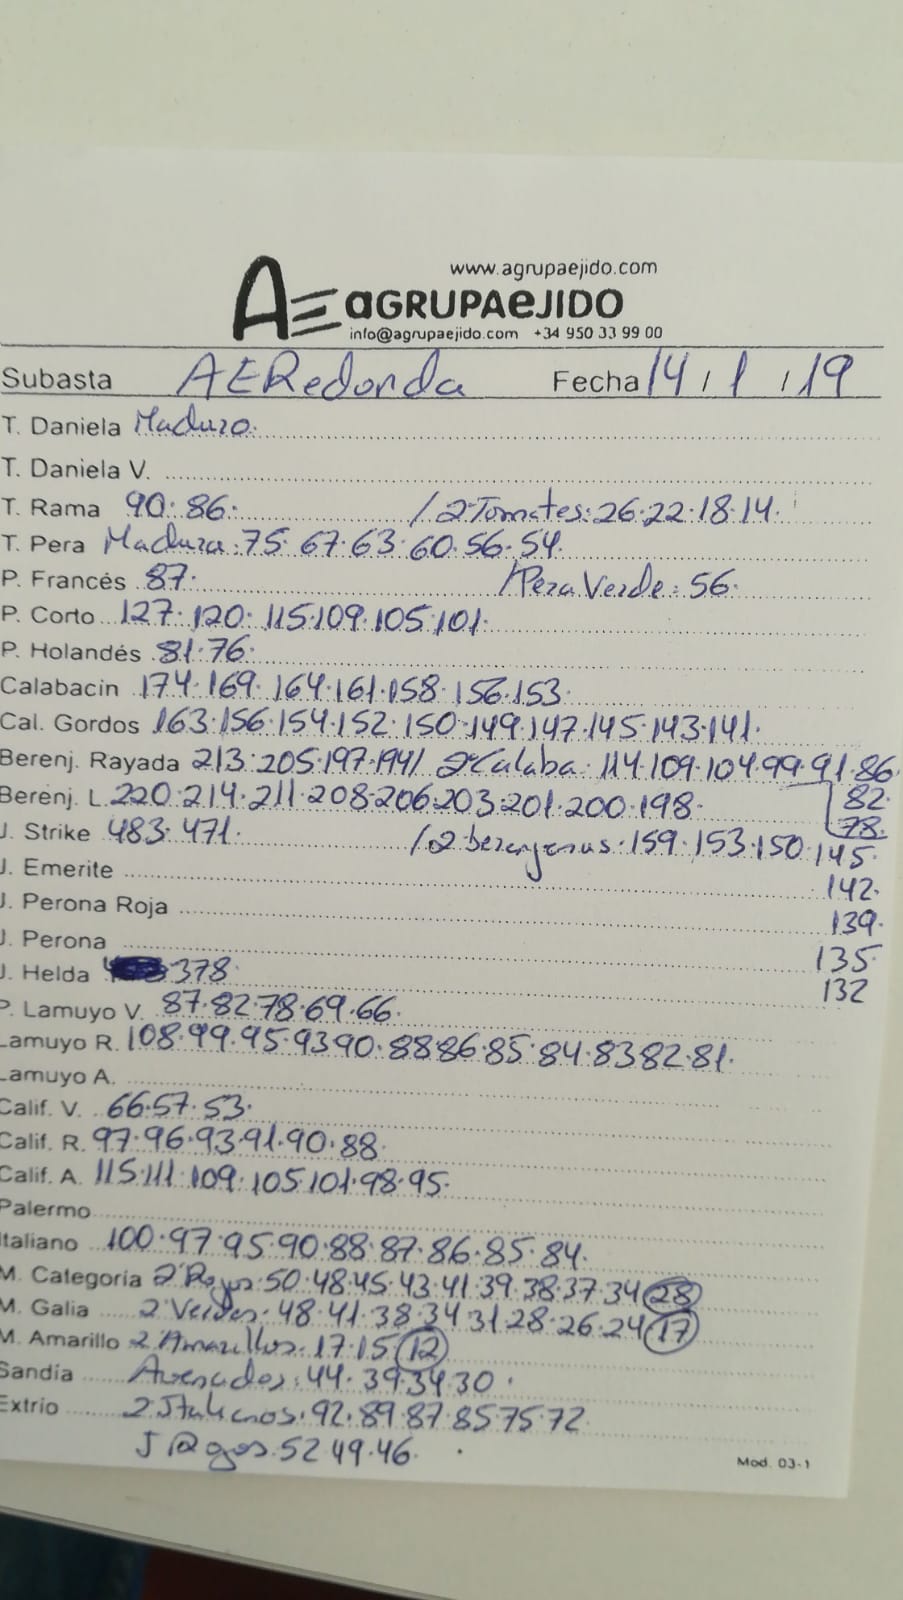 www.agrupaejido.com
AE aGRUPAeJIDO
info@agrupaejido.com +34 950 33 99 00
Subasta AERedonda Fecha 14 / 1 / 19
T. Daniela Maduro.
T. Daniela V.
T. Rama 90. 86. / 2ªTomates: 26.22.18.14.
T. Pera Madura: 75. 67.63.60.56.54.
P. Francés 87. /Pera Verde: 56.
P. Corto 127. 120. 115.109.105.101.
P. Holandés 81.76.
Calabacín 174.169. 164.161.158.156.153.
Cal. Gordos 163.156.154.152.150.149.147.145.143.141.
Berenj. Rayada 213.205.197.194/ 2ªCalaba: 114.109.104.99.91.86.
Berenj. L. 220.214.211.208.206.203.201.200.198. 82.
78.
J. Strike 483.471. / 2 berenjenas. 159.153.150.145.
J. Emerite 142.
J. Perona Roja 139.
J. Perona 135
J. Helda 378. 132
P. Lamuyo V. 87.82.78.69.66.
Lamuyo R. 108.99.95.93 90.88 86.85.84.83 82.81.
Lamuyo A.
Calif. V. 66.57.53.
Calif. R. 97.96.93.91.90.88.
Calif. A. 115.111.109.105.101.98.95.
Palermo
Italiano 100.97.95.90.88.87.86.85.84.
M. Categoría 2ªRojos. 50.48.45.43.41.39.38.37.34 28
M. Galia 2ªVerdes. 48.41.38.34 31.28.26.24 17
M. Amarillo 2 Amarillos. 17.15 12
Sandía Asurados: 44. 39.34.30.
Extrio 2 Italianos. 92.89.87.85 75.72.
J Rojos. 52 49.46.
Mod. 03-1